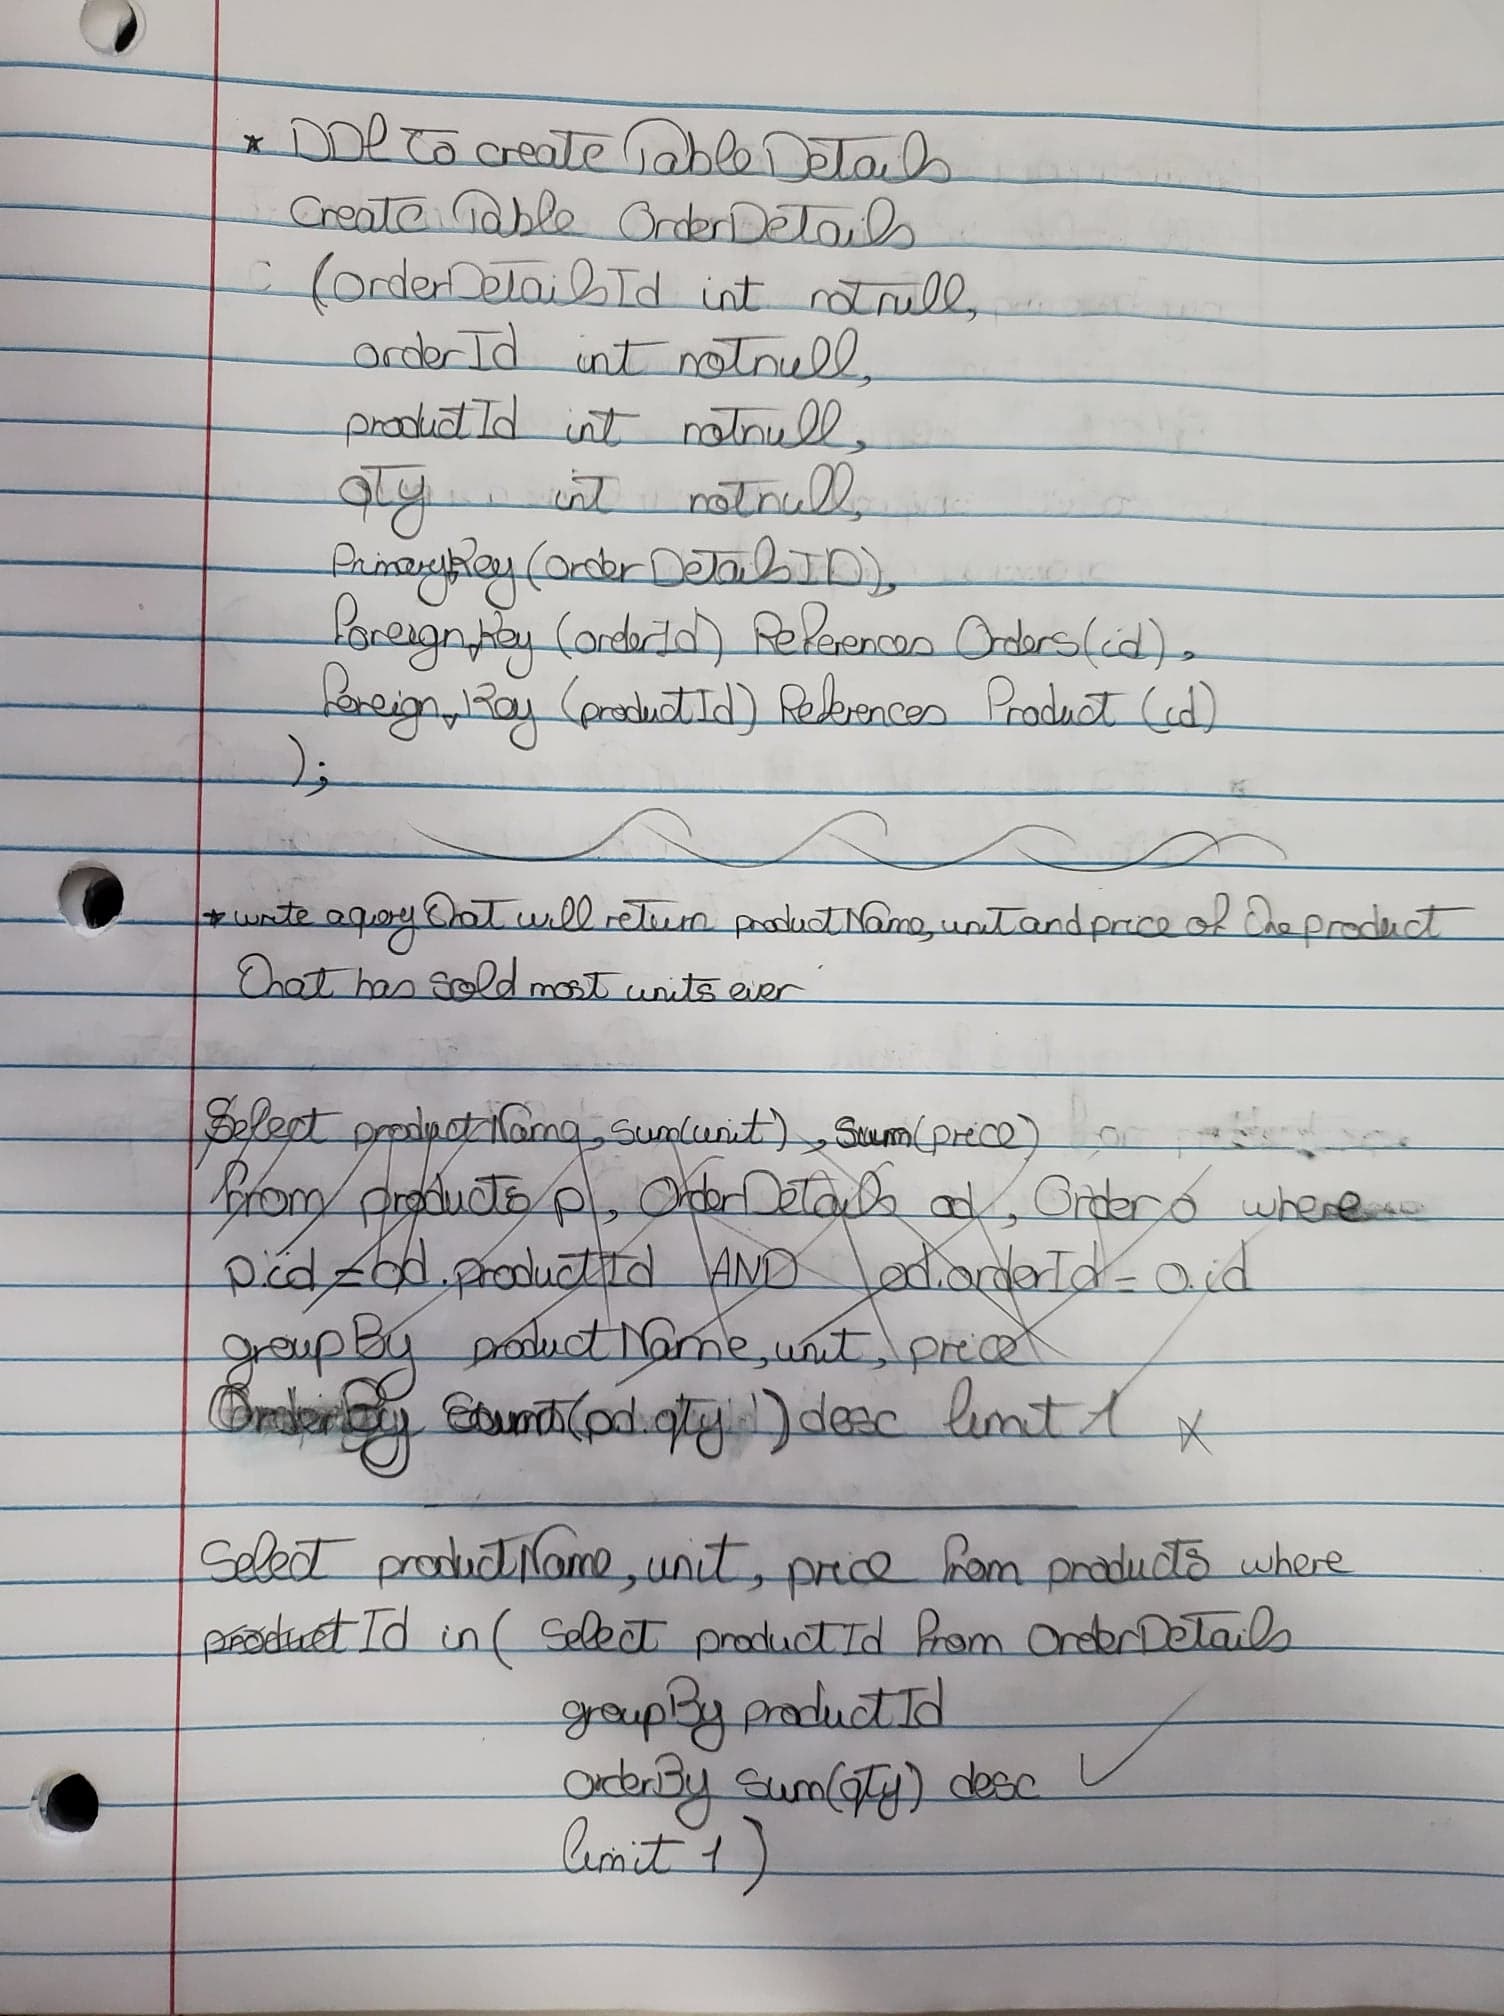 * DDl to create Table Details
Create Table OrderDetails
(orderDetailsId int notnull,
orderId int notnull,
productId int notnull,
qty int notnull,
PrimaryKey (orderDetailsID),
Foreign Key (orderId) References Orders(id),
Foreign Key (productId) References Product (id)
);
* write a query that will return productName, unit and price of the product
that has sold most units ever
Select productName, sum(unit), Sum(price)
from products p, OrderDetails od, Order o where
p.id = od.productId AND od.orderId = o.id
groupBy productName, unit, price
OrderBy (od.qty) desc limit 1 x
Select productName, unit, price from products where
productId in ( Select productId from OrderDetails
groupBy productId
orderBy sum(qty) desc
limit 1 )